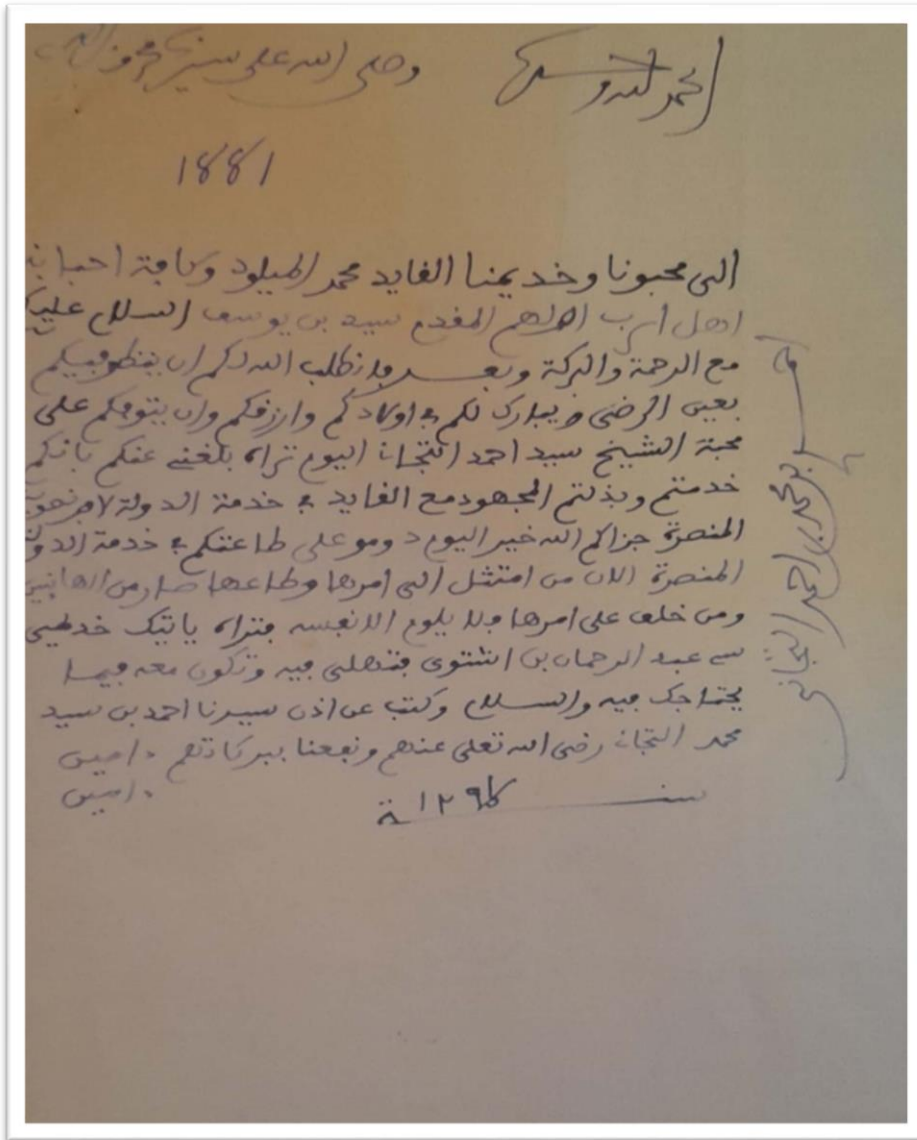 الحمد لله وحده وصلى الله على سيدنا محمد وآله
1881
الى محبونا وخديمنا الفايد محمد الميلود وكافة احبابنا
اهل المقدم سيد بن يوسف السلام عليكم
مع الرحمة والبركة وبعد فانطلب الله لكم ان ينظر فيكم
بعين الرضى ويبارك لكم في اولادكم وارزقكم وان يتوفكم على
محبة الشيخ سيد احمد التجان اليوم تراه بلغنى عنكم بانكم
خدمتم وبذلتم المجهود مع الفايد في خدمة الدولة
المنصرة جزاكم الله خير اليوم دومو على طاعتكم في خدمة الدولة
المنصرة الان من امتثل الى امرها وطاعها صار من الهانين
ومن خلف على امرها فلا يلوم الا نفسه فتراه ياتيك خديمى
سى عبد الرحمان بن الشتوى فتهلى فيه وتكون معه فيما
يحتاجك فيه والسلام وكتب عن اذن سيدنا احمد بن سيد
محمد التجان رضى الله تعلى عنهم ونفعنا ببركاتهم ءامين
ءامين
سنة ١٢٩٨
بن محمد بن احمد التجاني